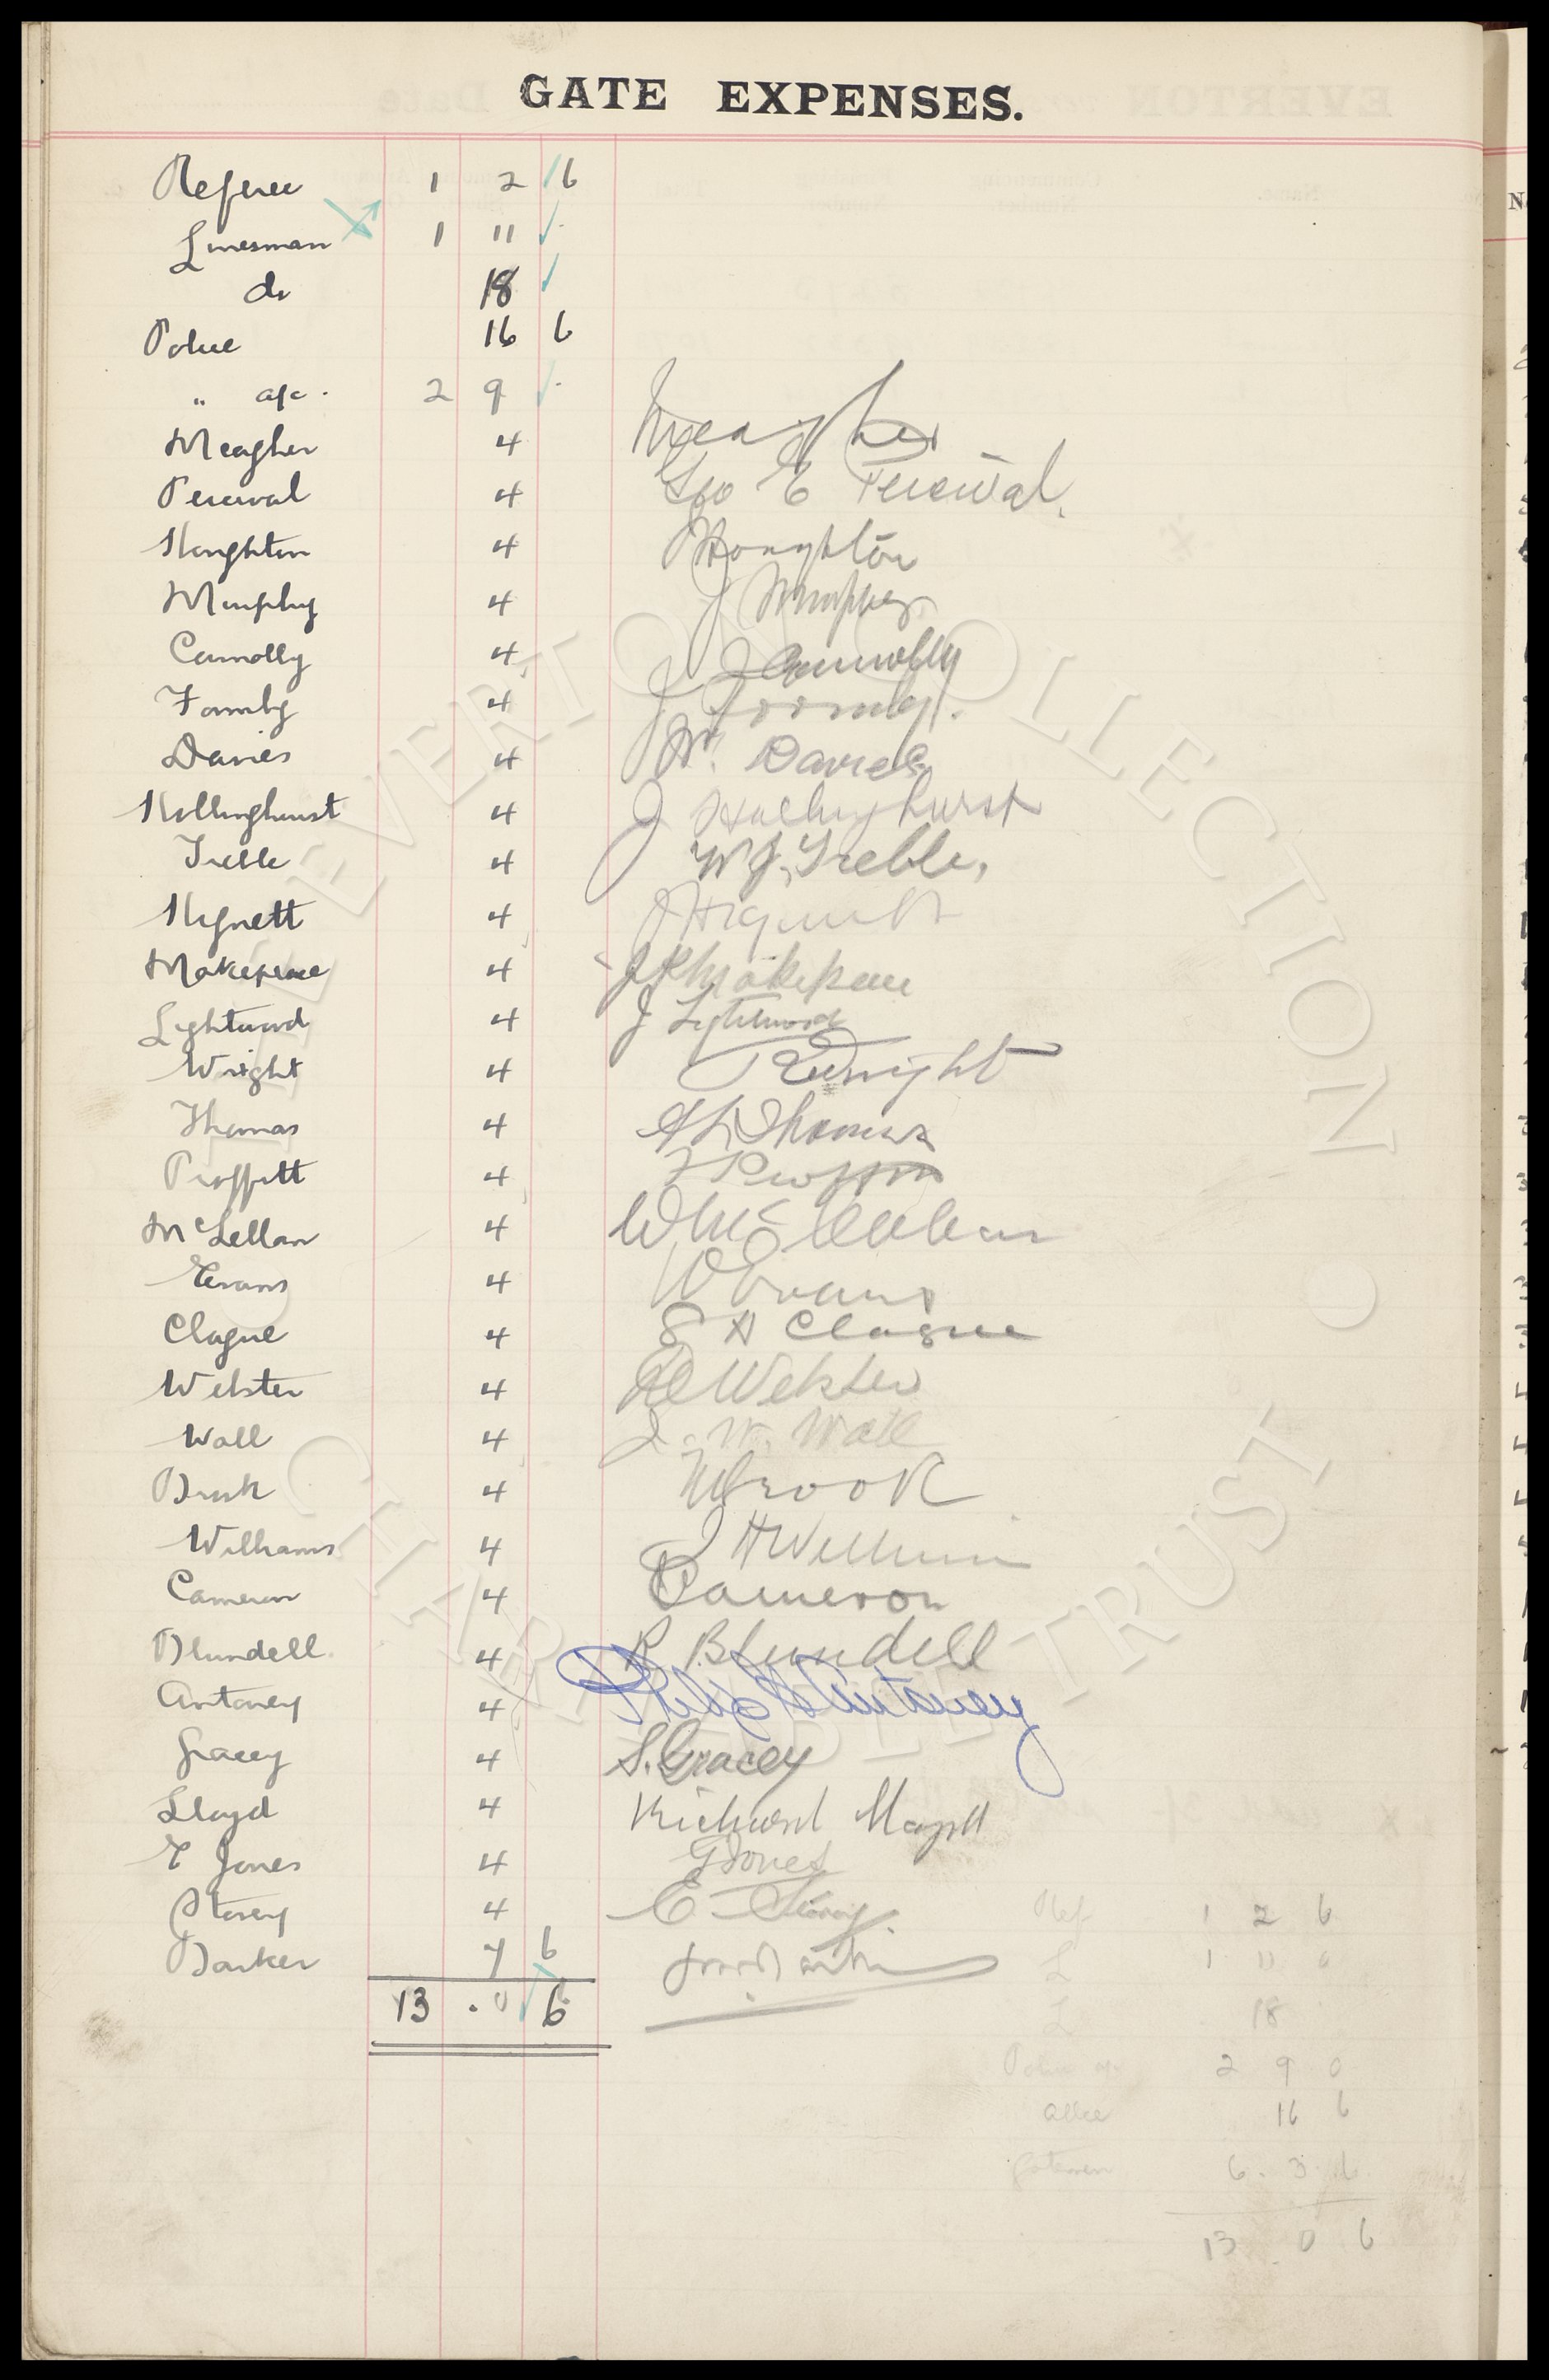 GATE EXPENSES.
Referee 1 2 6
Linesman 1 11
do 18
Police 16 6
" a/c. 2 9
Meagher 4 Meagher
Percival 4 Geo E Percival.
Houghton 4 Houghton
Murphy 4 J Murphy
Connolly 4 J Connolly
Formby 4 J Formby.
Davies 4 W. Davies
Hollinghurst 4 J Hollinghurst
Treble 4 W J. Treble.
Hignett 4 J Hignett
Makepeace 4 J R Makepeace
Lightwood 4 J Lightwood
Wright 4 Wright
Thomas 4 Thomas
Proffitt 4 Proffitt
McLellan 4 W McLellan
Evans 4 W Evans
Clague 4 E H Clague
Webster 4 Webster
Wall 4 J. W. Wall
Brook 4 Brook
Williams 4 J H Williams
Cameron 4 Cameron
Blundell 4 R Blundell
Antoney 4 Philip H Antoney
Gracey 4 S. Gracey
Lloyd 4 Richard Lloyd
E Jones 4 E Jones
Storey 4 E Storey
Barker 7 6
13 . 0 6
Ref 1 2 6
L 1 11 0
L 18
Police a/c 2 9 0
16 6
Gatemen 6 . 3 . 6
13 . 0 6
EVERTON COLLECTION CHARITABLE TRUST